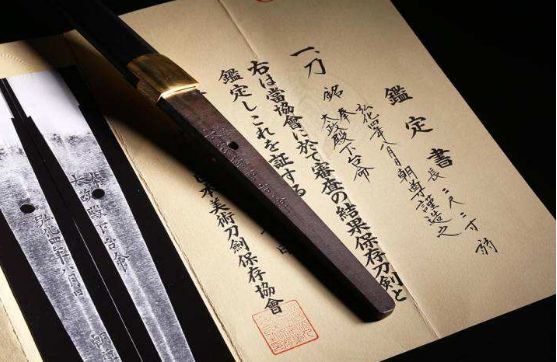 鑑定書
一、刀 銘
奉
大政殿下台命
弘化四年八月日朝尊謹造之
長 二尺二寸
右は當協會に於て審査の結果保存刀剣と
鑑定しこれを証する
日
本美術刀剣保存協會
殿下台命
年八月日